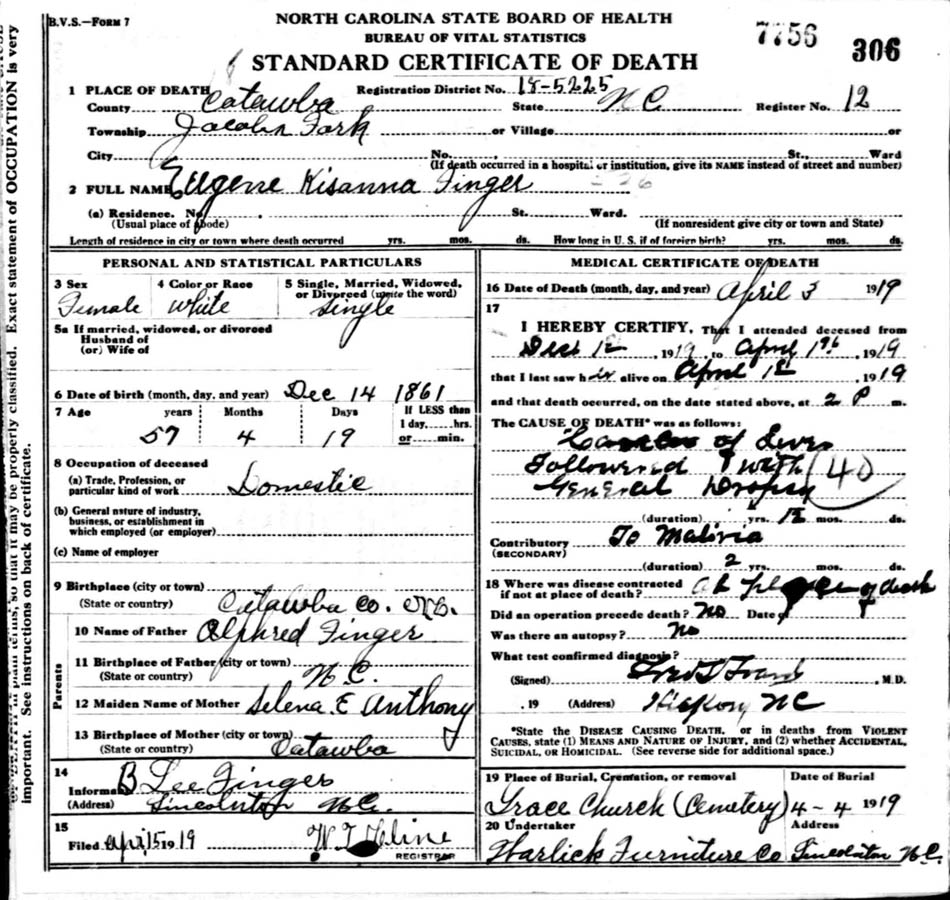 B.V.S.—FORM 7
NORTH CAROLINA STATE BOARD OF HEALTH
BUREAU OF VITAL STATISTICS
7756
306
STANDARD CERTIFICATE OF DEATH
1 PLACE OF DEATH Registration District No. 18-5225
County Catawba State N C Register No. 12
Township Jacobs Fork or Village or
City No. St., Ward
(If death occurred in a hospital or institution, give its NAME instead of street and number)
2 FULL NAME Eugene Kisanna Finger
(a) Residence. No. St. Ward.
(Usual place of abode) (If nonresident give city or town and State)
Length of residence in city or town where death occurred yrs. mos. ds. How long in U. S. if of foreign birth? yrs. mos. ds.
PERSONAL AND STATISTICAL PARTICULARS
3 Sex 4 Color or Race 5 Single, Married, Widowed, or Divorced (write the word)
Female White Single
5a If married, widowed, or divorced
Husband of
(or) Wife of
6 Date of birth (month, day, and year) Dec 14 1861
7 Age years Months Days If LESS than
1 day, hrs.
57 4 19 or min.
8 Occupation of deceased
(a) Trade, Profession, or
particular kind of work Domestic
(b) General nature of industry,
business, or establishment in
which employed (or employer)
(c) Name of employer
9 Birthplace (city or town)
(State or country) Catawba Co. N.C.
Parents
10 Name of Father Alphred Finger
11 Birthplace of Father (city or town)
(State or country) N.C.
12 Maiden Name of Mother Selena E Anthony
13 Birthplace of Mother (city or town)
(State or country) Catawba
14
Informant B Lee Finger
(Address) Lincolnton N.C.
15
Filed Apr 15 1919 W T Cline
REGISTRAR
MEDICAL CERTIFICATE OF DEATH
16 Date of Death (month, day, and year) April 3 1919
17
I HEREBY CERTIFY, That I attended deceased from
Dec 12, 1919, to April 1st, 1919
that I last saw her alive on April 1st, 1919
and that death occurred, on the date stated above, at 2 P m.
The CAUSE OF DEATH* was as follows:
of Liver
Followered with 40
General Dropsy
(duration) yrs. 12 mos. ds.
Contributory To Maliria
(SECONDARY)
(duration) 2 yrs. mos. ds.
18 Where was disease contracted
if not at place of death? at place of death
Did an operation precede death? No Date of
Was there an autopsy? no
What test confirmed diagnosis?
(Signed) Fred T , M.D.
, 19 (Address) Hickory NC
*State the DISEASE CAUSING DEATH, or in deaths from VIOLENT
CAUSES, state (1) MEANS AND NATURE OF INJURY, and (2) whether ACCIDENTAL,
SUICIDAL, OR HOMICIDAL. (See reverse side for additional space.)
19 Place of Burial, Cremation, or removal Date of Burial
Grace Church (Cemetery) 4-4 1919
20 Undertaker Address
Warlick Furniture Co Lincolnton N.C.
in plain terms, so that it may be properly classified. Exact statement of OCCUPATION is very
important. See instructions on back of certificate.